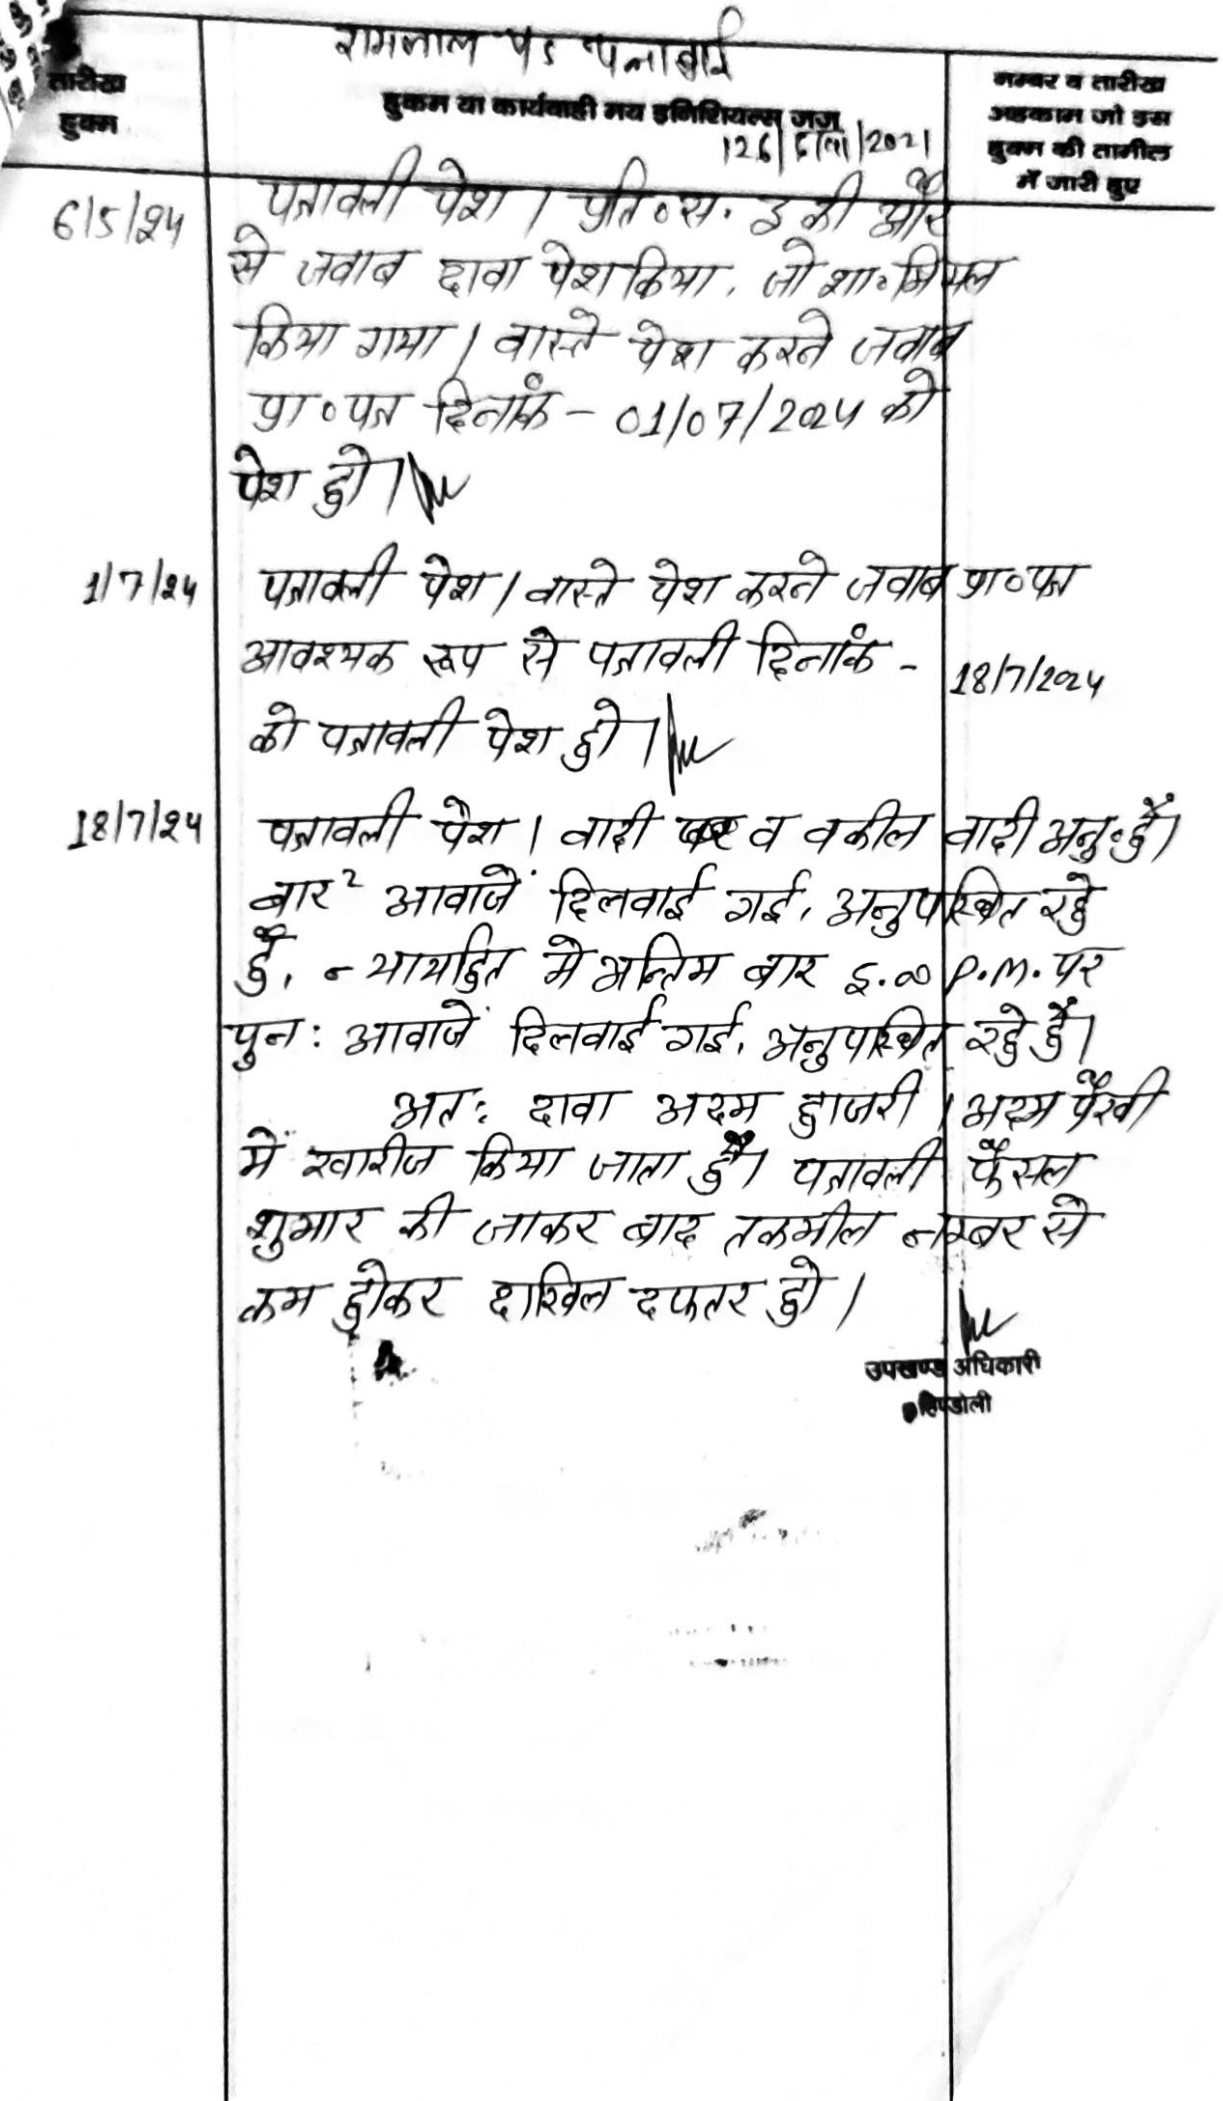 रामलाल
तारीख
हुक्म
हुकम या कार्यवाही मय इनिशियल्स जज
नम्बर व तारीख
अहकाम जो इस
हुक्म की तामील
में जारी हुए
126/ /2021
6/5/24 पत्रावली पेश । प्रति०स. 3 की और
से जवाब दावा पेश किया, जो शा० मिसल
किया गया । वास्ते पेश करने जवाब
प्रा०पत्र दिनांक - 01/07/2024 को
पेश हो ।
1/7/24 पत्रावली पेश । वास्ते पेश करने जवाब प्रा०पत्र
आवश्यक रूप से पत्रावली दिनांक - 18/7/2024
को पत्रावली पेश हो ।
18/7/24 पत्रावली पेश । वादी व वकील वादी अनु॰ हैं।
बार² आवाजें दिलवाई गई, अनुपस्थित रहे
हैं, न्यायहित मे अन्तिम बार 3.00 P.M. पर
पुन: आवाजें दिलवाई गई, अनुपस्थित रहे हैं।
अत: दावा अदम हाजरी । अदम पैरवी
में खारीज किया जाता हैं। पत्रावली फैसल
शुमार की जाकर बाद तकमील नम्बर से
कम होकर दाखिल दफतर हो ।
उपखण्ड अधिकारी
हिण्डोली